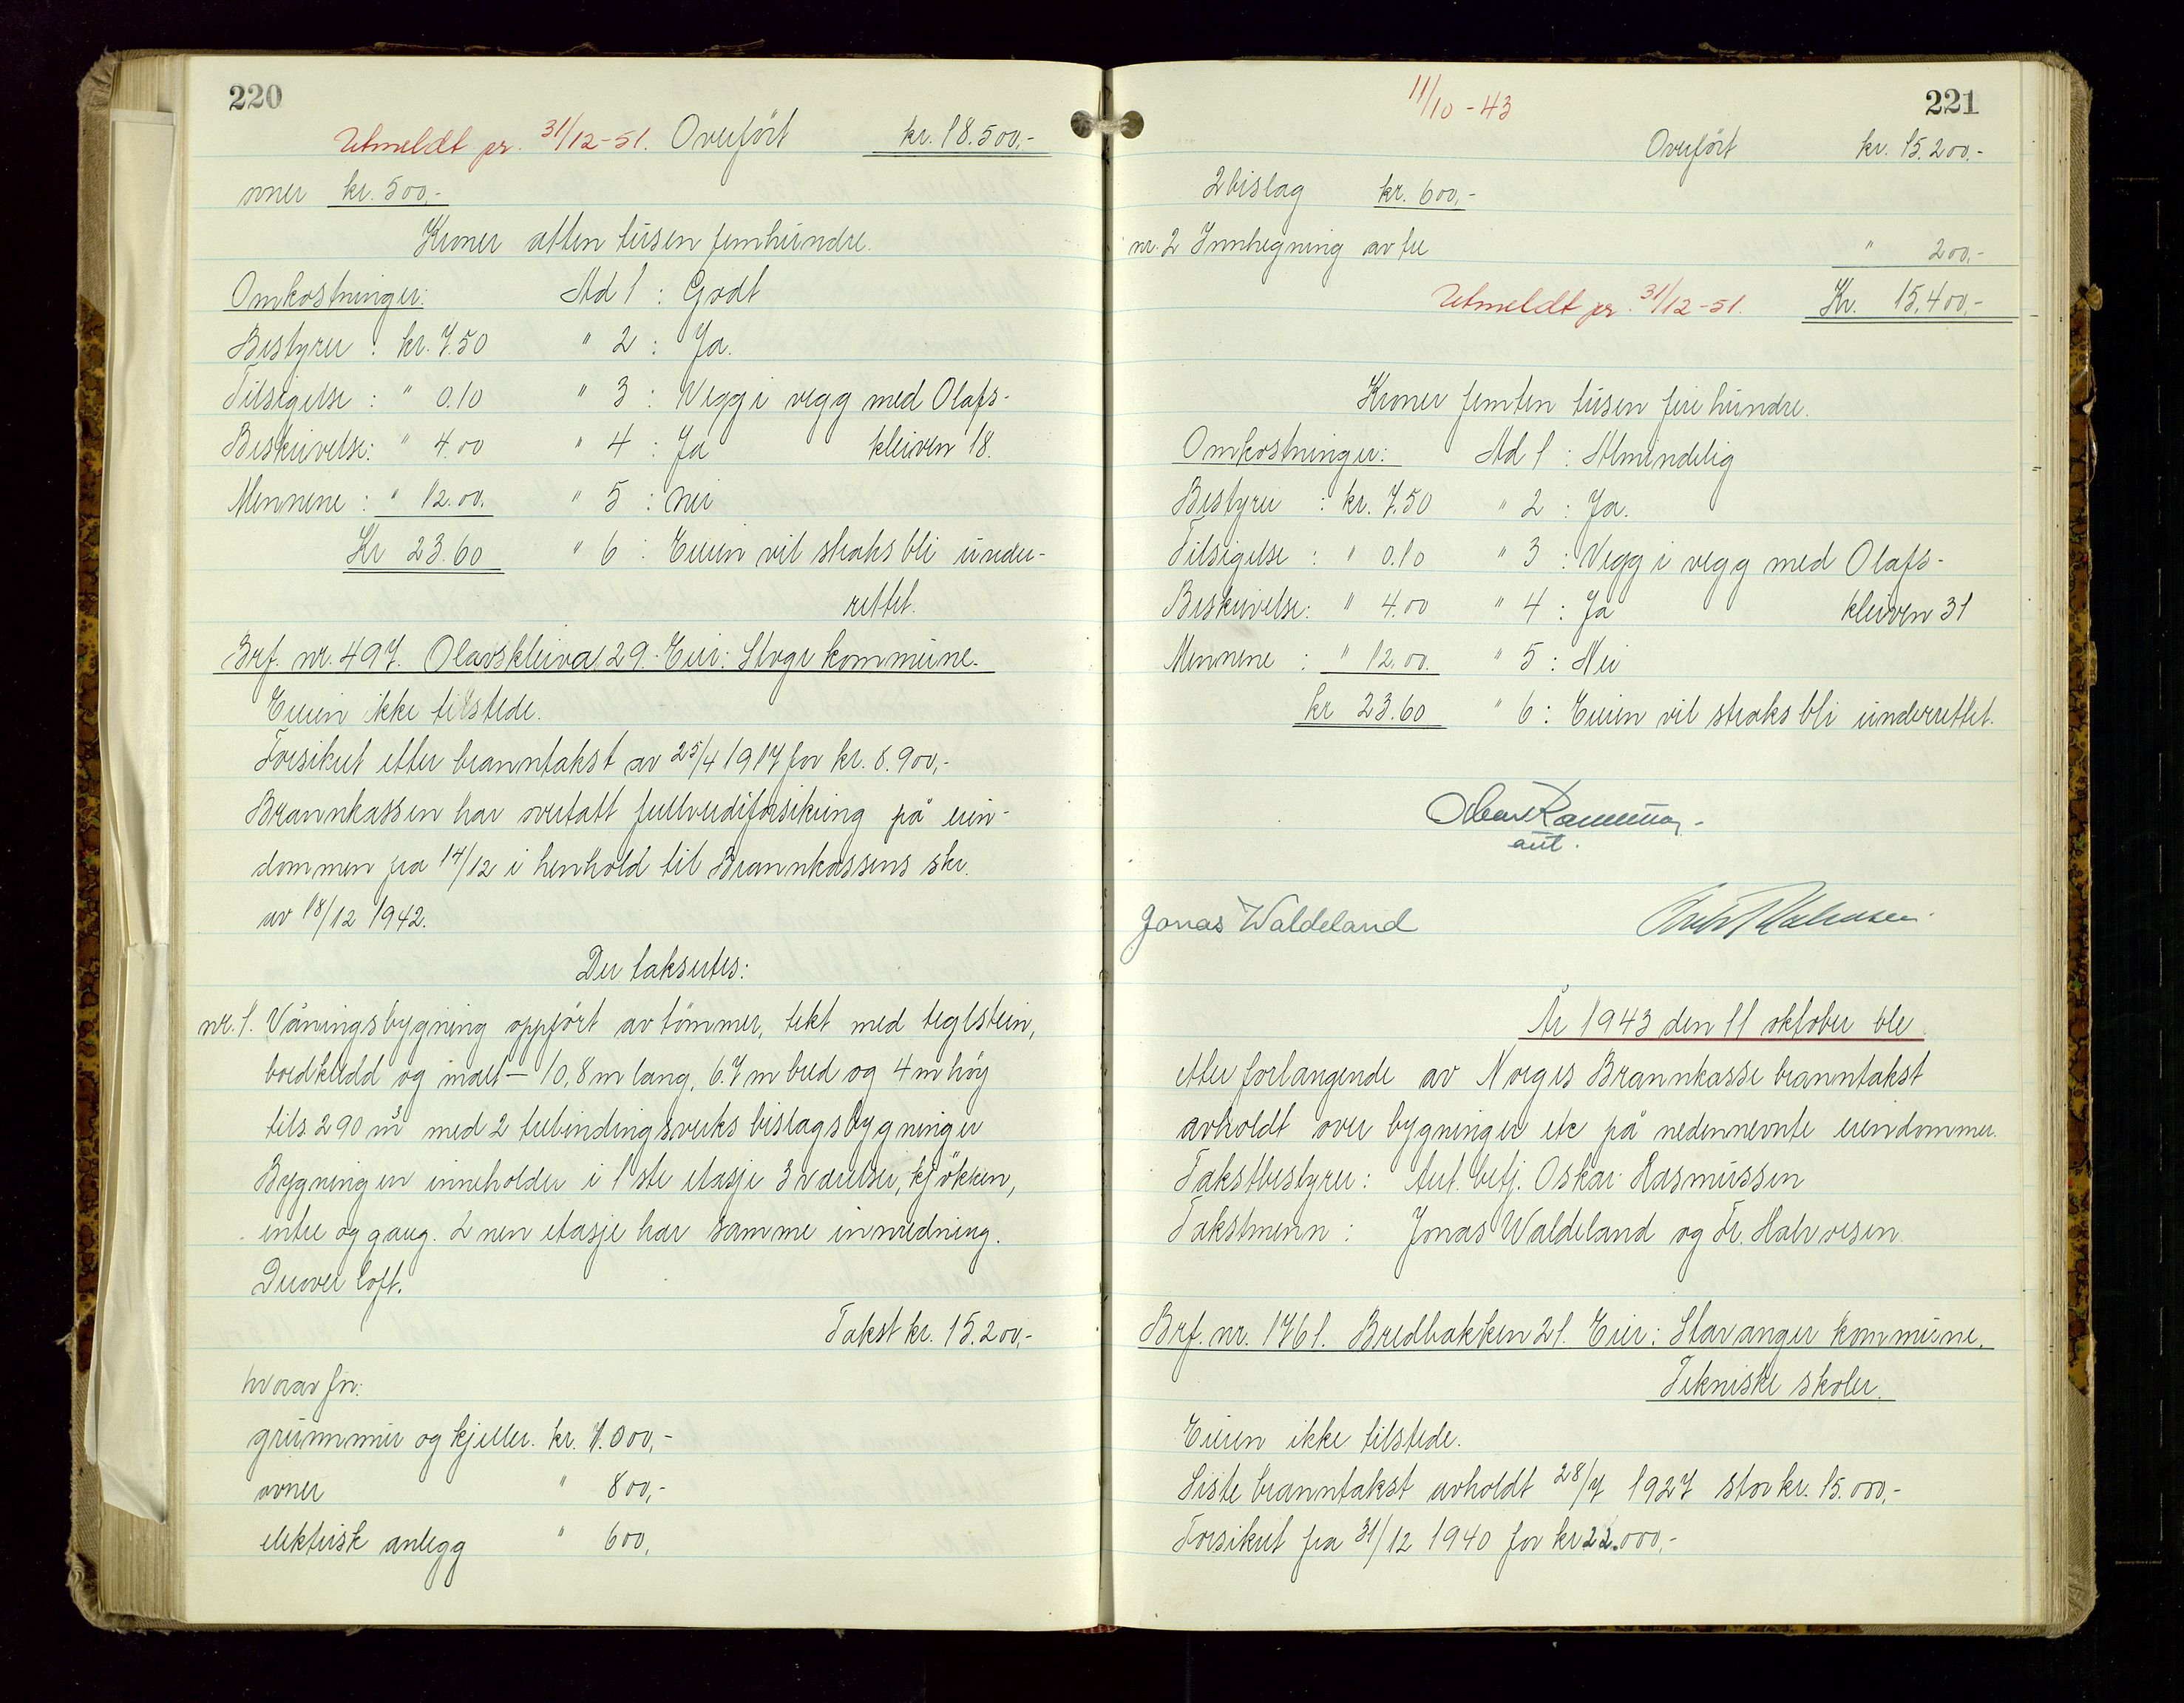 220
Utmeldt pr. 31/12-51. Overført kr. 18.500,-
ovner kr. 500,-
Kroner atten tusen femhundre.
Omkostninger: Ad 1 : Godt
Bestyrer : kr. 7.50 " 2 : Ja.
Tilsigelse : " 0.10 " 3 : Vegg i vegg med Olafs-
Beskrivelse: " 4.00 " 4 : Ja kleiven 18.
Mennene : " 12.00. " 5 : Nei
Kr 23.60 " 6 : Eieren vil straks bli under-
rettet.
Brf. nr. 497. Olavskleiva 29. Eier: Stvgr kommune.
Eieren ikke tilstede.
Forsikret etter branntakst av 25/4 1917 for kr. 8.900,-
Brannkassen har overtatt fullverdiforsikring på eien-
dommen fra 14/12 i henhold til Brannkassens skr.
av 18/12 1942.
Der takseres:
nr. 1. Våningsbygning oppført av tømmer, tekt med teglstein,
bordkledd og malt - 10,8 m lang, 6.7 m bred og 4 m høy
tils. 290 m³ med 2 trebindingsverks bislagsbygninger
Bygningen inneholder i 1ste etasje 3 værelser, kjøkken,
entre og gang. 2nen etasje har samme innredning.
Derover loft.
Takst kr. 15.200,-
hvorav for:
grunnmur og kjeller. kr. 1.000,-
ovner " 800,-
elektrisk anlegg " 600,
11/10 - 43
221
Overført kr. 15.200,-
2 bislag kr. 600,-
nr. 2 Innhegning av tre " 200,-
Utmeldt pr. 31/12-51. Kr. 15.400,-
Kroner femten tusen fire hundre.
Omkostninger: Ad 1 : Almindelig
Bestyrer : kr. 7.50 " 2 : Ja.
Tilsigelse : " 0.10 " 3 : Vegg i vegg med Olafs-
Beskrivelse: " 4.00 " 4 : Ja kleiven 31
Mennene : " 12.00. " 5 : Nei
kr 23.60 " 6 : Eieren vil straks bli underrettet.
Oskar Rasmussen.
aut.
Jonas Waldeland
År 1943 den 11 oktober ble
etter forlangende av Norges Brannkasse branntakst
avholdt over bygninger etc på nedennevnte eiendommer.
Takstbestyrer: Aut. betj. Oskar Rasmussen
Takstmenn : Jonas Waldeland og Fr. Halvorsen
Brf. nr. 1761. Bredbakken 21. Eier: Stavanger kommune.
Tekniske skoler.
Eieren ikke tilstede.
Siste branntakst avholdt 28/7 1927 stor kr. 15.000,-
Forsikret fra 31/12 1940 for kr 22.000,-